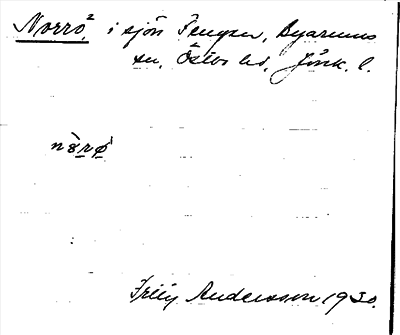 Norrö² i sjön Fengen, Byarums
sn, Östbo hd, Jönk. l.
nòrø
Andersson 1930.